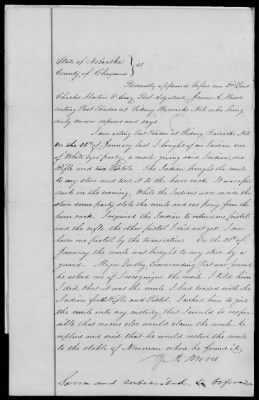 State of Nebraska }
County of Cheyenne } SS
Personally appeared before me 1st Lieut
Charles Morton 3rd Cavy Post Adjutant, James A. Moore
acting Post Trader at Sidney Barracks Neb. who being
duly sworn deposes and says
I am acting Post Trader at Sidney Barracks Neb.
On the of January last I bought of an Indian, one
of White Eyes party, a mule, giving said Indian, one
Rifle and two Pistols. The Indian brought the mule
to my store and tied it to the horse rack. It was after
dark in the evening. While the Indians were inside the
store some party stole the mule and one pony from the
horse rack. I required the Indian to return one pistol
and the rifle the other pistol I did not get. I am
loser one pistol by the transaction. On the of
January the mule was brought to my store by a
guard. Major Dudley Commanding Post was present
he asked me if I recognized the mule. I told him
I did, that it was the mule I had traded with the
Indian for Rifle and Pistol. I asked him to give
the mule into my custody, that I would be respon-
sible that no one else would claim the mule. he
replied and said that he would return the mule
to the stable of Newman where he found it.
Moore
Sworn and subscribed to before